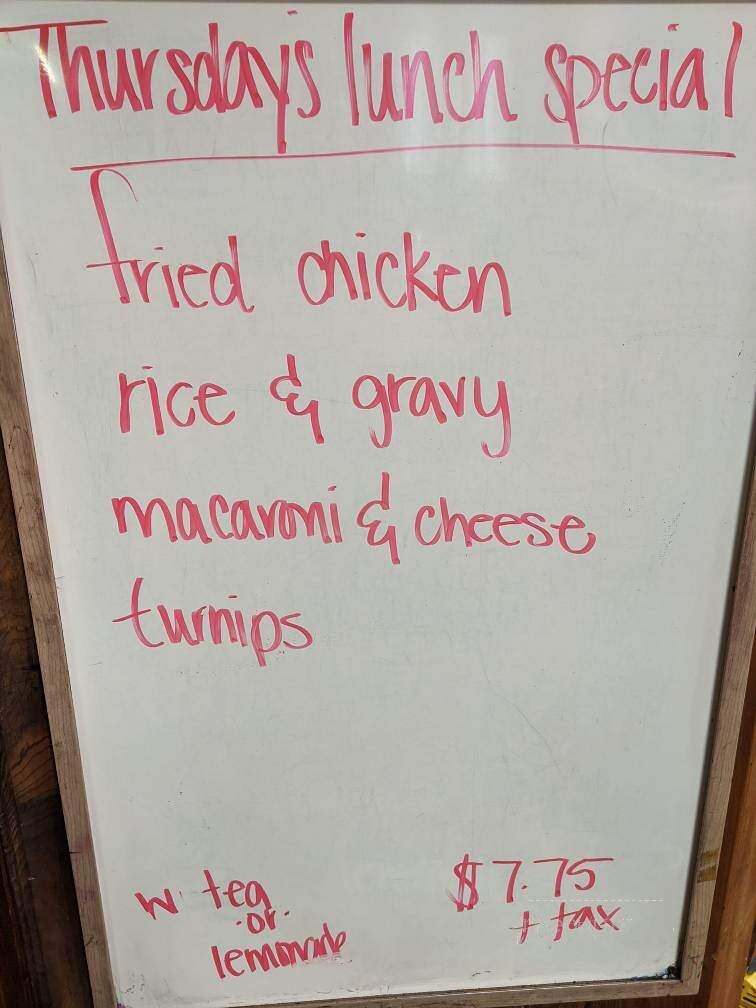 Thursday's lunch special
fried chicken
rice & gravy
macaroni & cheese
turnips
w/ tea
-or-
lemonade
$7.75
+ tax